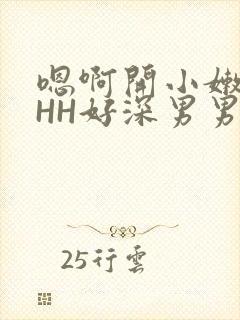 嗯啊開小嫩
HH好深男男
25行雲